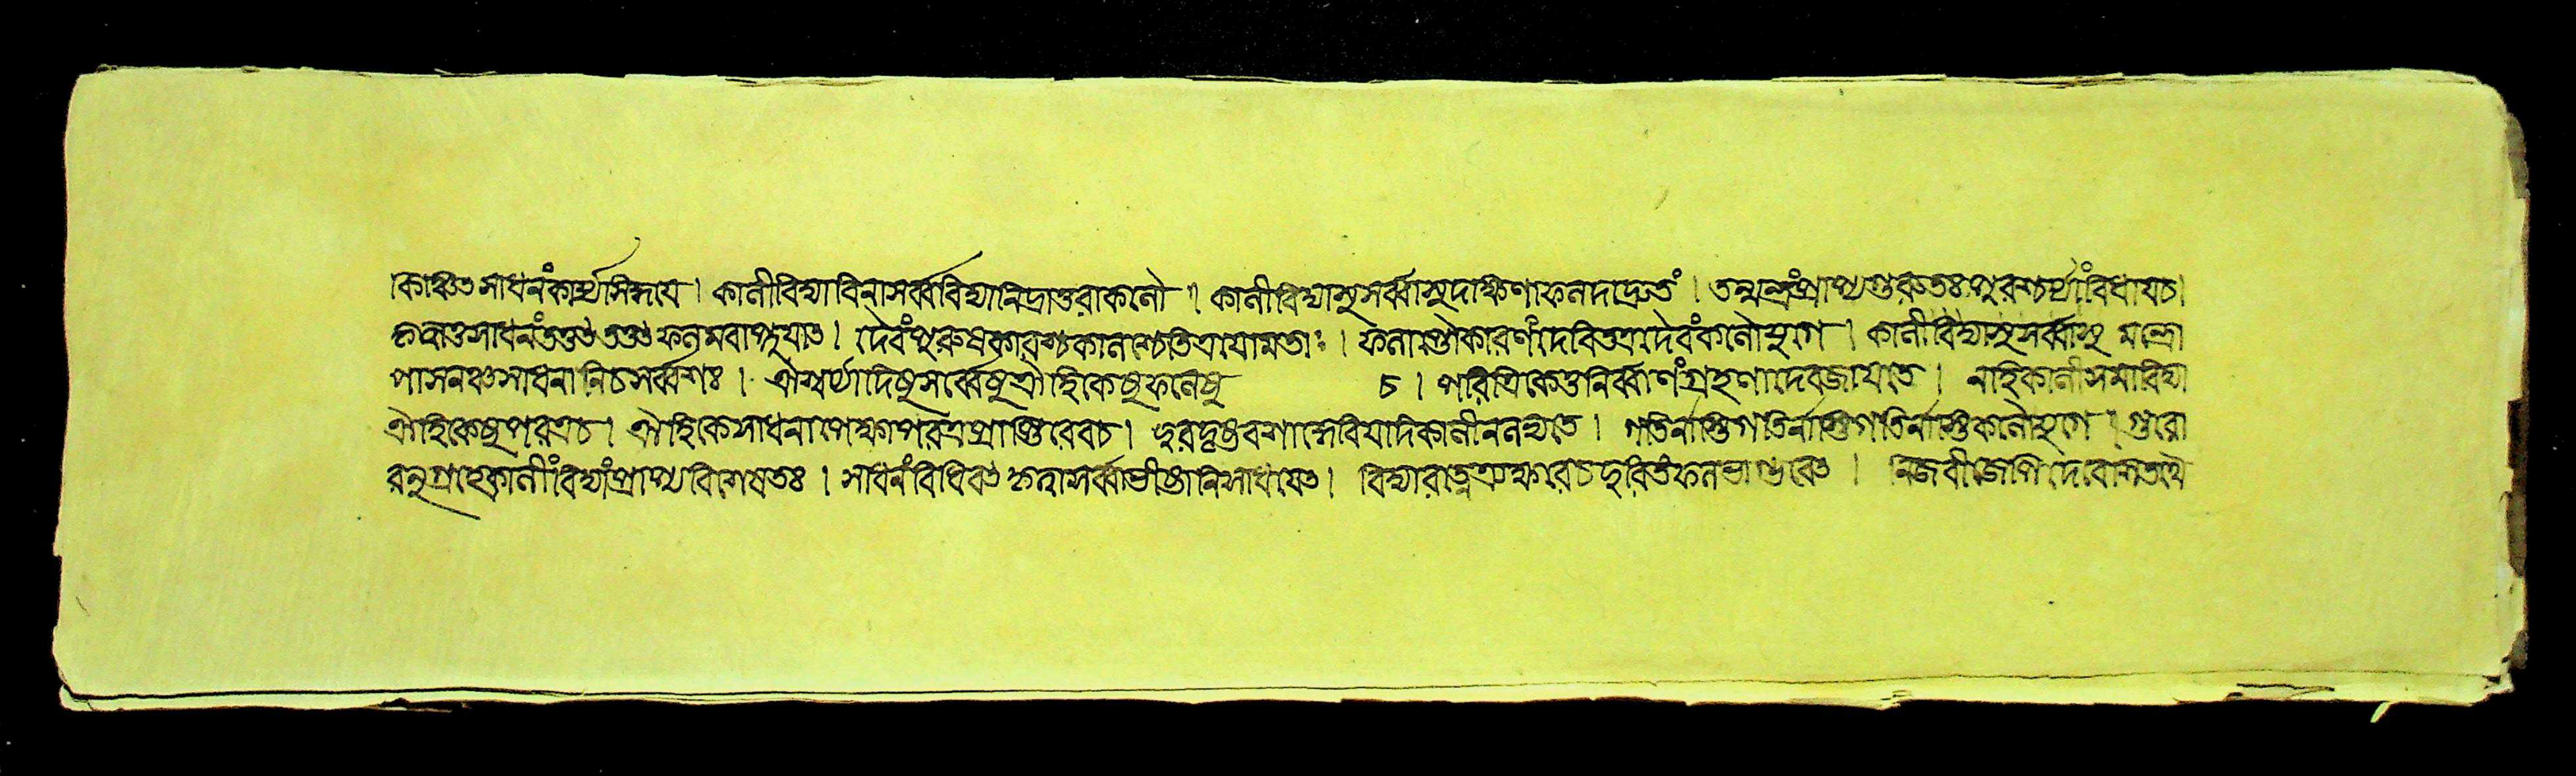 কাঞ্চিত সাধনংকার্য্যসিদ্ধয়ে। কালীবিদ্যাবিনাসর্ব্ববিদ্যানিদ্রাতুরাকলৌ। কালীবিদ্যাসুসর্ব্বাসুদক্ষিণাফলদাদ্রুতং। তন্মন্ত্রংপ্রাপ্যগুরুতঃপুরশ্চর্য্যাংবিধায়চ।
কৃত্বাতৎসাধনংতত্তৎফলমবাপ্নুযাত। দৈবংপুরুষকারশ্চকালশ্চেতিত্রযোমতাঃ। ফলাপ্তৌকারণংদেবিতত্রদৈবংকলৌযুগে। কালীবিদ্যাসুসর্ব্বাসু মন্ত্রো
পাসনঞ্চসাধনানিচসর্ব্বশঃ। ঐশ্বর্য্যাদিষুসর্ব্বেষুঐহিকেষুফলেষু চ। পারত্রিকেতুনির্ব্বাণংগ্রহণাদেবজাযতে। নহিকালীসমাবিদ্যা
ঐহিকেষুপরত্রচ। ঐহিকেসাধনাপেক্ষাপরত্রপ্রাপ্তিরেবচ। দুরদৃষ্টবশাদ্দেবিযদিকালীনলভ্যতে। গতির্নাস্তিগতির্নাস্তিগতির্নাস্তিকলৌযুগে। গুরো
রনুগ্রহেকালীংবিদ্যাংপ্রাপ্যবিশেষতঃ। সাধনংবিধিবৎকৃত্বাসর্ব্বাভীষ্টানিসাধযেৎ। বিদ্যারাত্ন ত্বরিতংফলভাগ্ভবেৎ। নিজবীজে